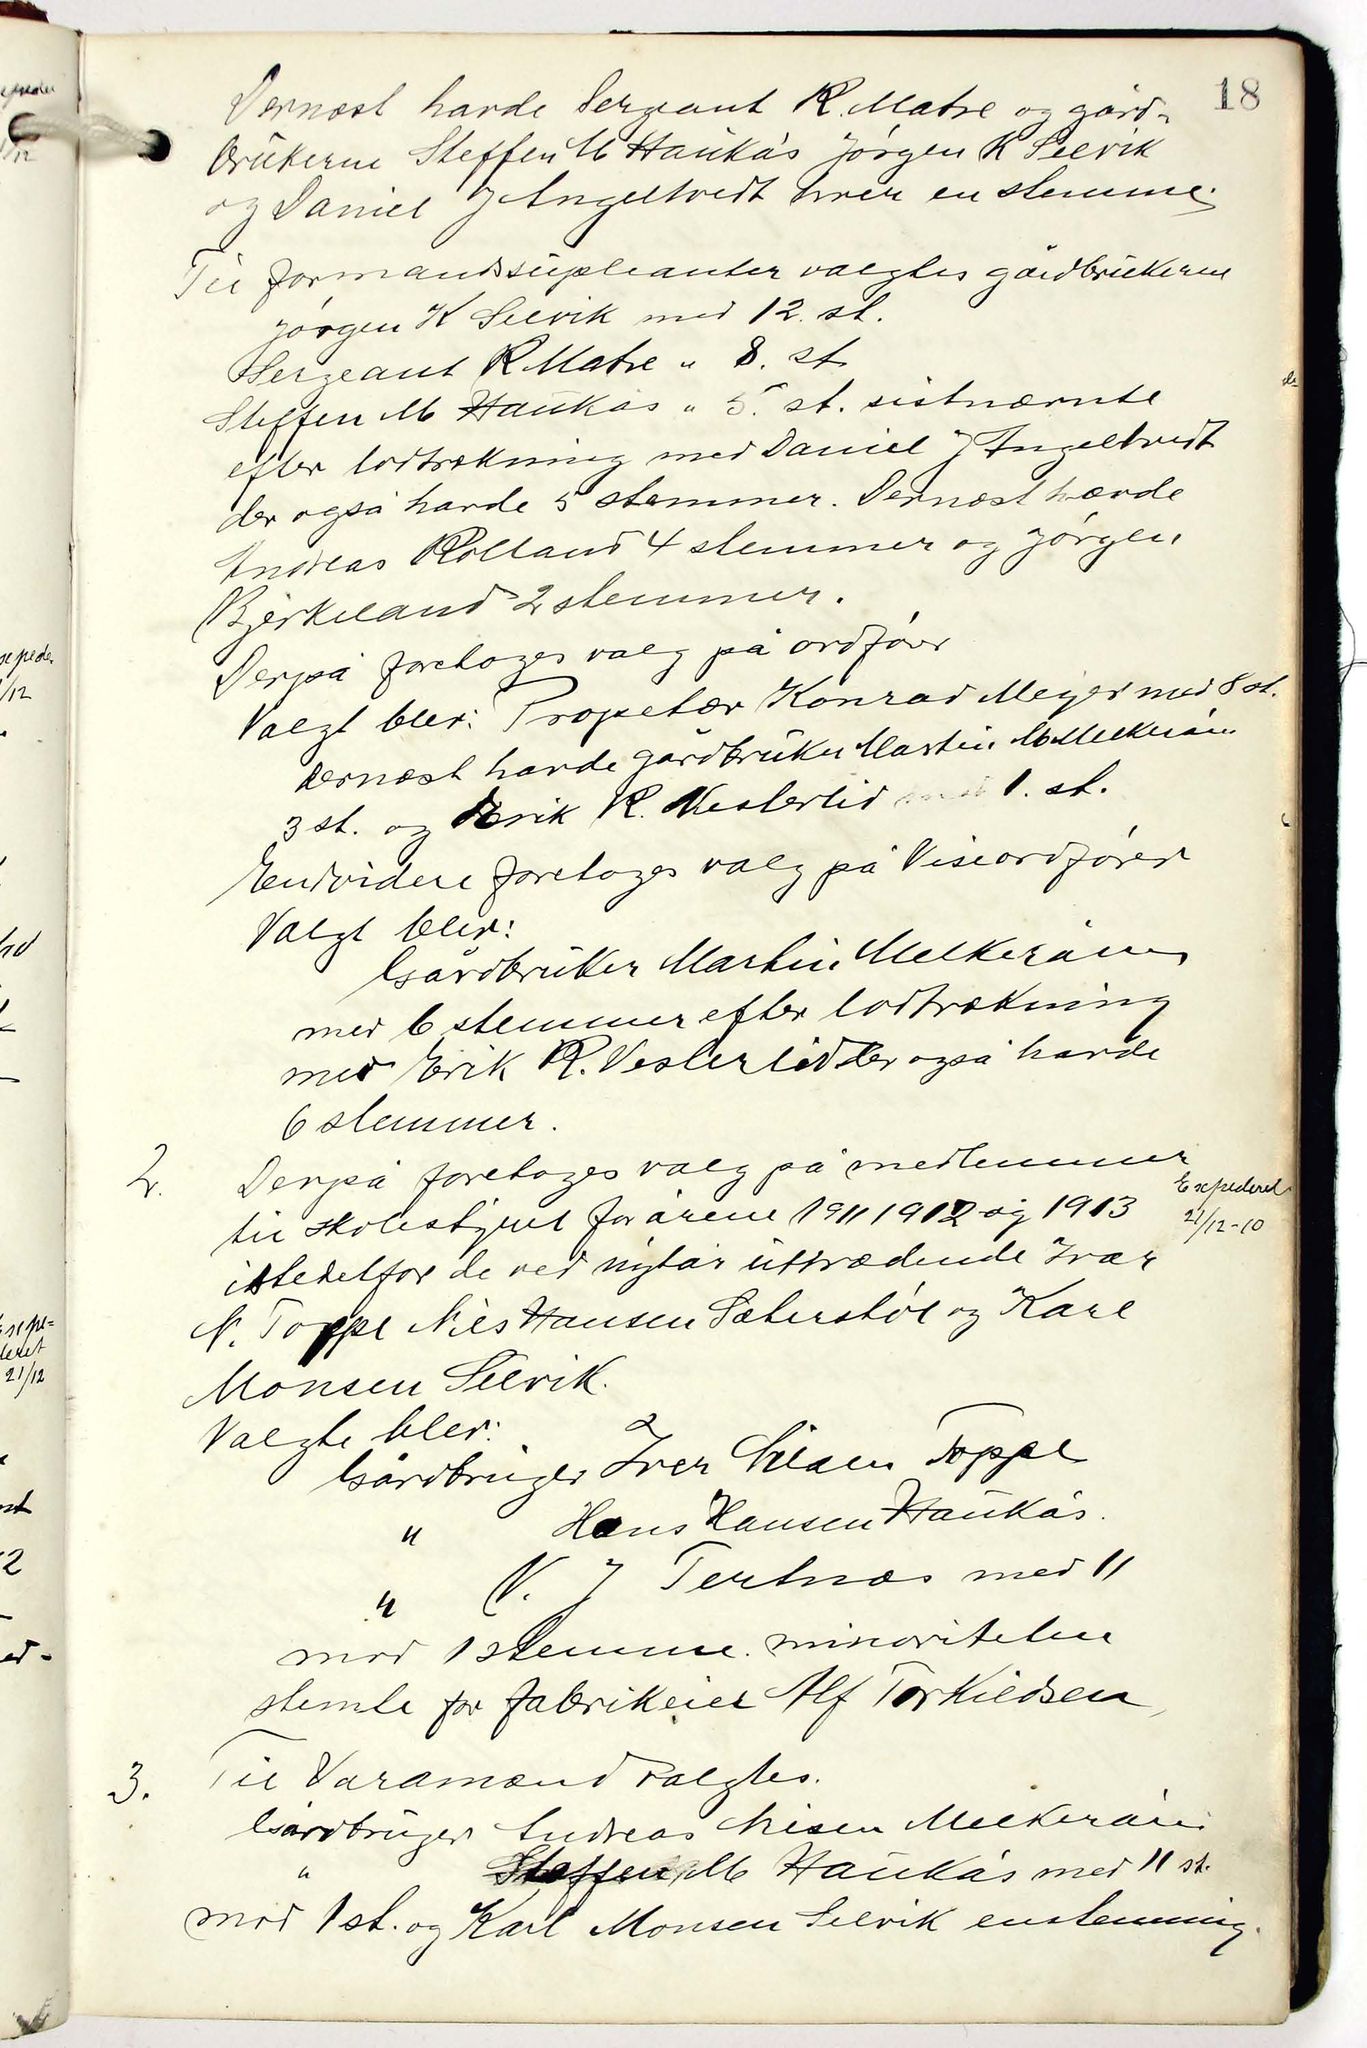 18
Dernæst havde Sergeant R. Matre og gård-
brukerne Steffen M Haukås Jørgen K Selvik
og Daniel J Angeltvedt hver en stemme.
Til formandssupleanter valgtes gårdbrukerne
Jørgen K Selvik med 12. st.
Sergeant R Matre " 8. st
Steffen M Haukås " 5. st. sistnævnte
efter lodtrækning med Daniel J Angeltvedt
der også havde 5 stemmer. Dernæst havde
Andreas Rolland 4 stemmer og Jørgen
Bjerkeland 2 stemmer.
Derpå foretoges valg på ordfører
Valgt blev: Propetær Konrad Meyer med 8 st.
dernæst havde gårdbruker Martin M Melkeråen
3 st. og Erik R. Vesterlid med 1. st.
Endvidere foretoges valg på Viseordfører
Valgt blev:
Gårdbruker Martin Melkeråen
med 6 stemmer efter lodtrækning
med Erik R. Vesterlid der også havde
6 stemmer.
2. Derpå foretoges valg på medlemmer
til skolestyret for årene 1911 1912 og 1913
istedetfor de ved nytår uttrædende Ivar
N. Toppe Nils Hansen Sæterstøl og Karl
Monsen Selvik.
Expederet
21/12-10
Valgte blev:
Gårdbruger Iver Nilsen Toppe
" Hans Hansen Haukås.
" N. J Tertnæs med 11
mod 1 stemme. minoriteten
stemte for fabrikeier Alf Torkildsen,
3. Til Varamænd valgtes.
Gårdbruger Andreas Nilsen Melkeråen
" Steffen M Haukås med 11 st.
mod 1 st. og Karl Monsen Selvik enstemmig.